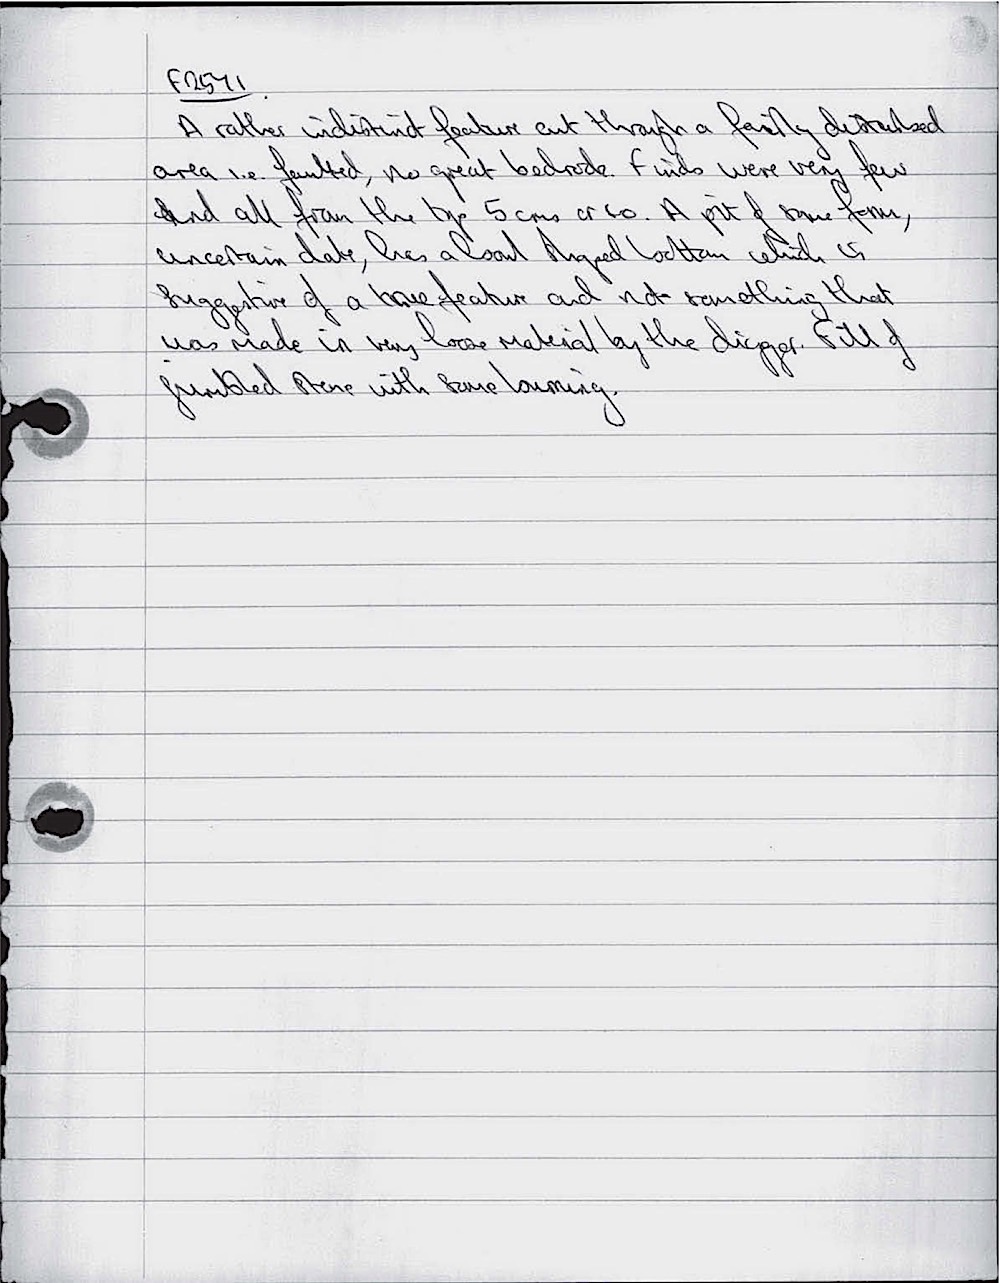 F2541.
A rather indistinct feature cut through a fairly disturbed
area i.e. faulted, no great bedrock. Finds were very few
and all from the top 5 cms or so. A pit of some form,
uncertain date, has a bowl shaped bottom which is
suggestive of a true feature and not something that
was made in very loose material by the digger. Fill of
jumbled stone with some loaming.